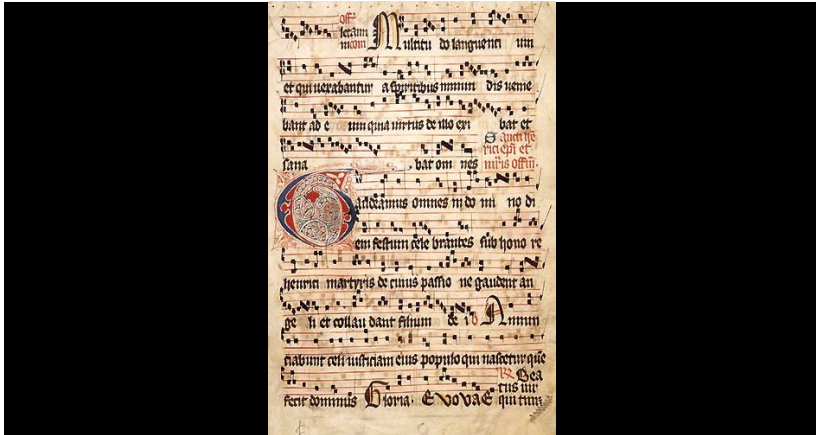 off.
letami
incom Multitu do languenti um
et qui vexabantur a spiritibus inmun dis venie
bant ad e um quia virtus de illo exi bat et
sana bat om nes
Sancti he
rici epi et
mris offm
Gaudeamus omnes in do mi no di
em festum cele brantes sub hono re
henrici martyris de cuius passio ne gaudent an
ge li et collau dant filium de i Annun
ciabunt celi iusticiam eius populo qui nascetur que
fecit dominus Gloria. EVOVAE
Bea
tus vir
qui tim